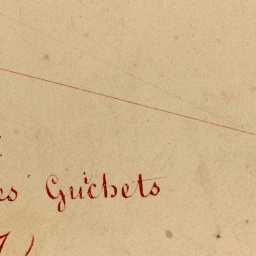 es Guichets